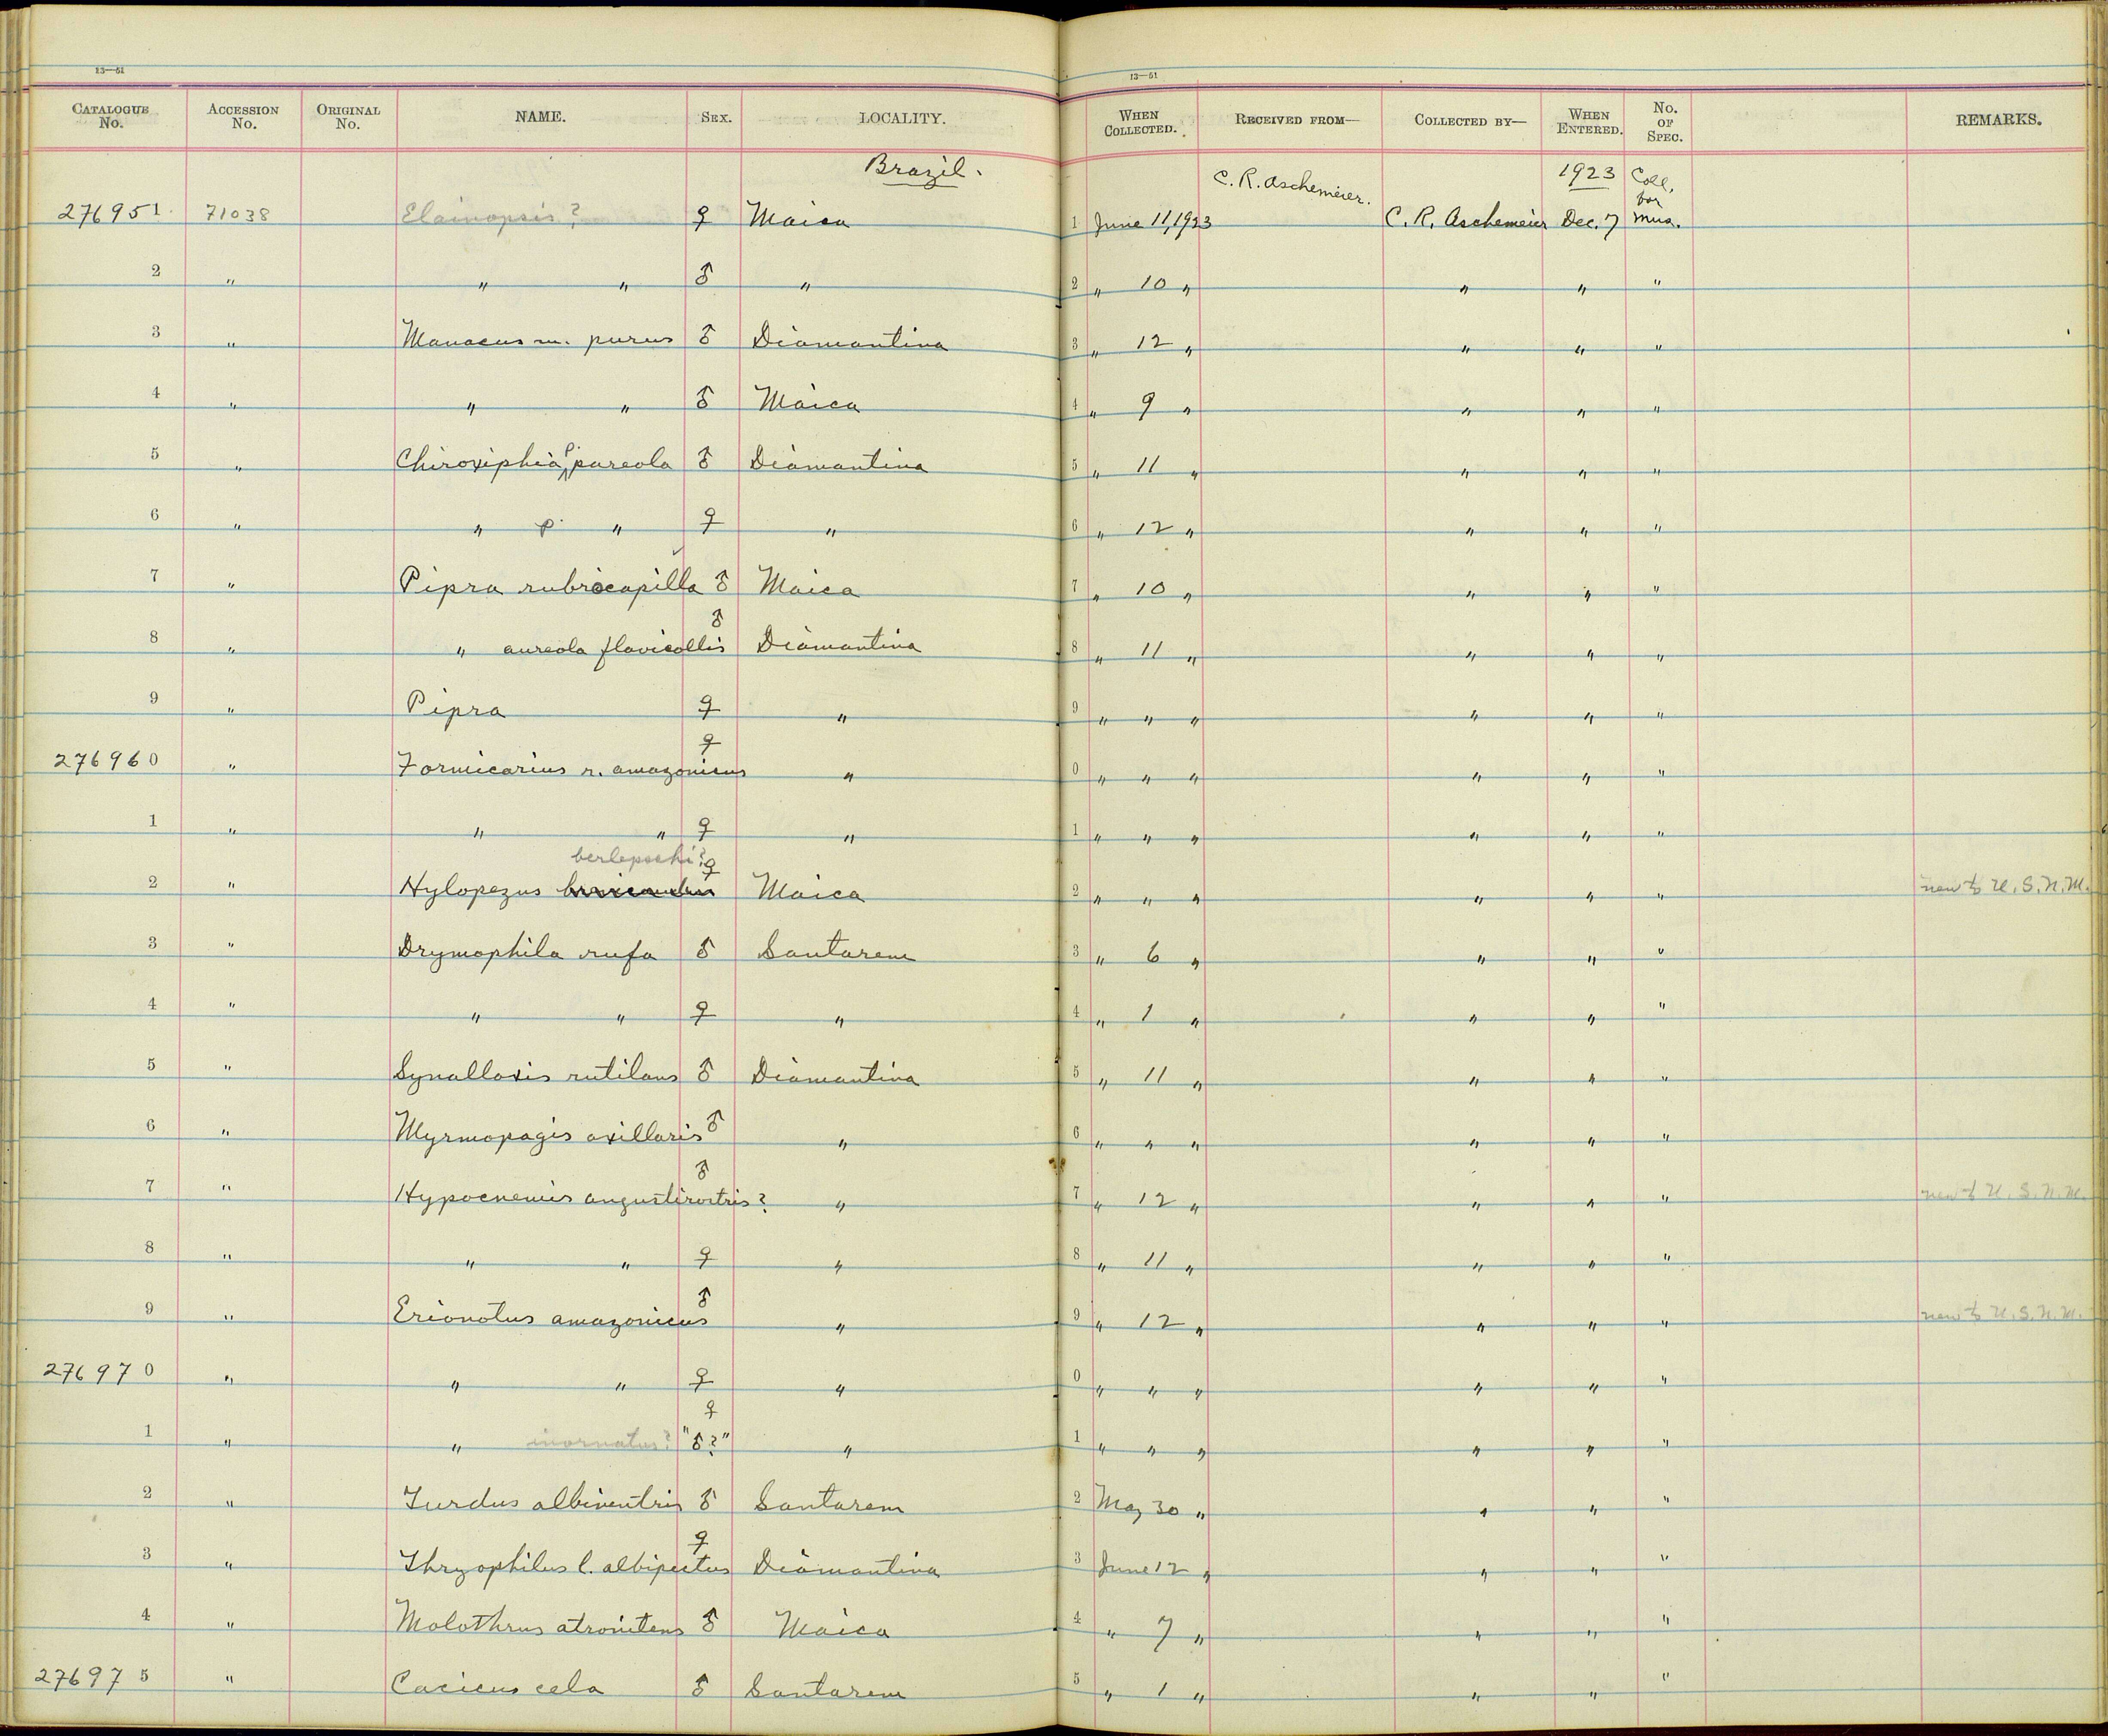 13—51 13—51
CATALOGUE No. ACCESSION No. ORIGINAL No. NAME. SEX. LOCALITY. WHEN COLLECTED. RECEIVED FROM— COLLECTED BY— WHEN ENTERED. No. OF SPEC. REMARKS.
Brazil. C. R. Aschemeier. 1923 Coll. for
276951 71038 Elainopsis? ♀ Maica 1 June 11, 1923 C. R. Aschemeier Dec. 7 Mus.
2 " " " ♂ " 2 " 10 " " " "
3 " Manacus m. purus ♂ Diamantina 3 " 12 " " " "
4 " " " ♂ Maica 4 " 9 " " " "
5 " Chiroxiphia p. pareola ♂ Diamantina 5 " 11 " " " "
6 " " p. " ♀ " 6 " 12 " " " "
7 " Pipra rubrocapilla ♂ Maica 7 " 10 " " " "
8 " " aureola flavicollis ♂ Diamantina 8 " 11 " " " "
9 " Pipra ♀ " 9 " " " " " "
276960 " Formicarius r. amazonicus ♀ " 0 " " " " " "
1 " " " ♀ " 1 " " " " " "
berlepschi?
2 " Hylopezus ♀ Maica 2 " " " " " " new to U.S.N.M.
3 " Drymophila rufa ♂ Santarem 3 " 6 " " " "
4 " " " ♀ " 4 " 1 " " " "
5 " Synallaxis rutilans ♂ Diamantina 5 " 11 " " " "
6 " Myrmopagis axillaris ♂ " 6 " " " " " "
7 " Hypocnemis angustirostris? ♂ " 7 " 12 " " " " new to U.S.N.M.
8 " " " ♀ " 8 " 11 " " " "
9 " Erionotus amazonicus ♂ " 9 " 12 " " " " new to U.S.N.M.
276970 " " " ♀ " 0 " " " " " "
♀
1 " " inornatus? "♂?" " 1 " " " " " "
2 " Turdus albiventris ♂ Santarem 2 May 30 " " " "
3 " Thryophilus l. albipectus ♀ Diamantina 3 June 12 " " " "
4 " Molothrus atronitens ♂ Maica 4 " 7 " " " "
276975 " Cacicus cela ♂ Santarem 5 " 1 " " " "